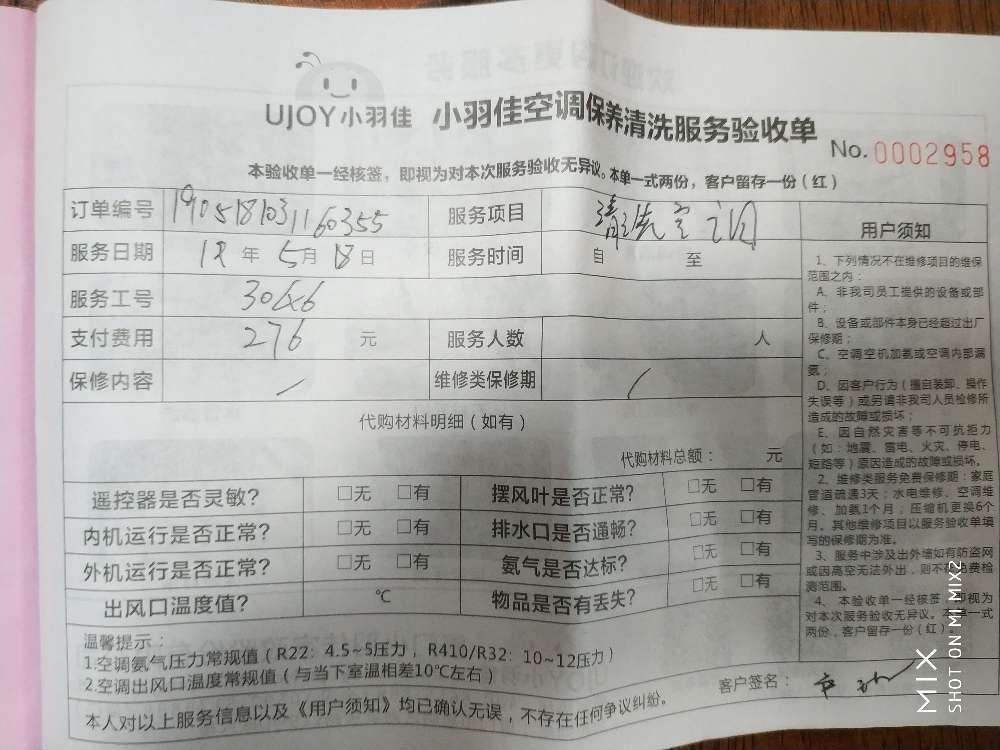 UJOY小羽佳 小羽佳空调保养清洗服务验收单
No.0002958
本验收单一经核签，即视为对本次服务验收无异议。本单一式两份，客户留存一份(红)
订单编号 190518103116 0355 服务项目 清洗空调
服务日期 18 年 5 月 18 日 服务时间 自 至
服务工号
支付费用 276 元 服务人数 人
保修内容 / 维修类保修期 /
代购材料明细（如有）
代购材料总额： 元
遥控器是否灵敏? □无 □有 摆风叶是否正常? □无 □有
内机运行是否正常? □无 □有 排水口是否通畅? □无 □有
外机运行是否正常? □无 □有 氨气是否达标? □无 □有
出风口温度值? ℃ 物品是否有丢失? □无 □有
温馨提示：
1.空调氨气压力常规值（R22：4.5~5压力，R410/R32：10~12压力）
2.空调出风口温度常规值（与当下室温相差10℃左右）
客户签名：
本人对以上服务信息以及《用户须知》均已确认无误，不存在任何争议纠纷。
用户须知
1、下列情况不在维修项目的维保
范围之内：
A、非我司员工提供的设备或部
件；
B、设备或部件本身已经超过出厂
保修期；
C、空调空机加氨或空调内部漏
氨；
D、因客户行为（擅自装卸、操作
失误等）或另请非我司人员检修所
造成的故障或损坏；
E、因自然灾害等不可抗拒力
（如：地震、雷电、火灾、停电、
短路等）原因造成的故障或损坏。
2、维修类服务免费保修期：家庭
管道疏通3天；水电维修、空调维
修、加氨1个月；压缩机更换6个
月。其他维修项目以服务验收单填
写的保修期为准。
3、服务中涉及出外墙如有防盗网
或因高空无法外出，则不在免费检
测范围。
4、本验收单一经核签，即视为
对本次服务验收无异议。本单一式
两份，客户留存一份(红)。
MIX
SHOT ON MI MIX2